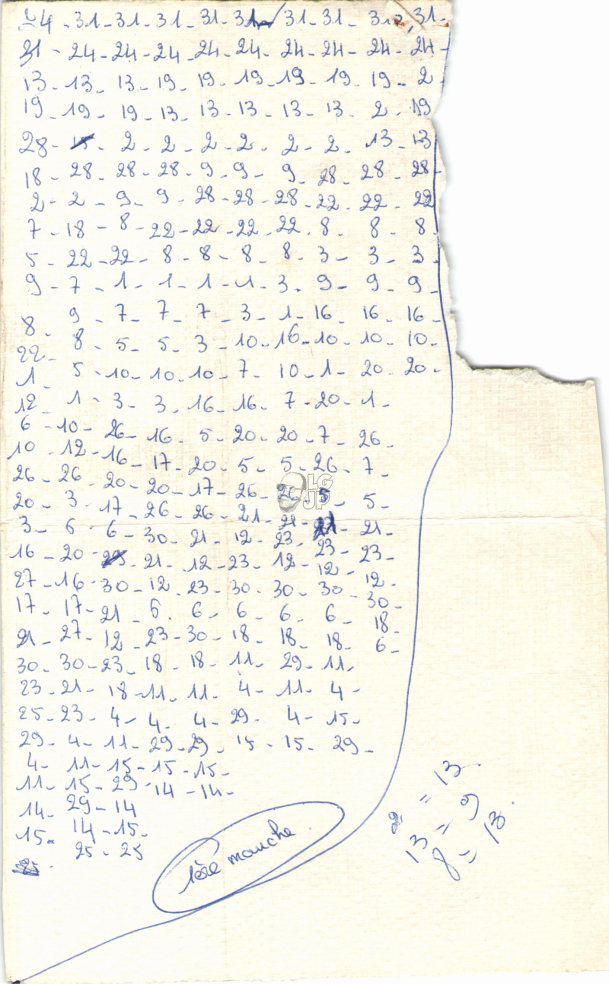 24 - 31 - 31 - 31 - 31 - 31 - 31 - 31 - 31 - 31 -
31 - 24 - 24 - 24 - 24 - 24 - 24 - 24 - 24 - 24 -
13 - 13 - 13 - 19 - 19 - 19 - 19 - 19 - 19 - 2 -
19 - 19 - 19 - 13 - 13 - 13 - 13 - 13 - 2 - 19
28 - - 2 - 2 - 2 - 2 - 2 - 2 - 13 - 13
18 - 28 - 28 - 28 - 9 - 9 - 9 - 28 - 28 - 28 -
2 - 2 - 9 - 9 - 28 - 28 - 28 - 22 - 22 - 22
7 - 18 - 8 - 22 - 22 - 22 - 22 - 8 - 8 - 8
5 - 22 - 22 - 8 - 8 - 8 - 8 - 3 - 3 - 3 -
9 - 7 - 1 - 1 - 1 - 1 - 3 - 9 - 9 - 9 -
8 - 9 - 7 - 7 - 7 - 3 - 1 - 16 - 16 - 16 -
22 - 8 - 5 - 5 - 3 - 10 - 16 - 10 - 10 - 10 -
1 - 5 - 10 - 10 - 10 - 7 - 10 - 1 - 20 - 20 -
12 - 1 - 3 - 3 - 16 - 16 - 7 - 20 - 1 -
6 - 10 - 26 - 16 - 5 - 20 - 20 - 7 - 26 -
10 - 12 - 16 - 17 - 20 - 5 - 5 - 26 - 7 -
26 - 26 - 20 - 20 - 17 - 26 - 26 - 5 - 5 -
20 - 3 - 17 - 26 - 26 - 21 - 21 - 21 - 21 -
3 - 6 - 6 - 30 - 21 - 12 - 23 - 23 - 23 -
16 - 20 - - 21 - 12 - 23 - 12 - 12 - 12 -
27 - 16 - 30 - 12 - 23 - 30 - 30 - 30 - 30 -
17 - 17 - 21 - 6 - 6 - 6 - 6 - 6 - 18 -
21 - 27 - 12 - 23 - 30 - 18 - 18 - 18 - 6 -
30 - 30 - 23 - 18 - 18 - 11 - 29 - 11 -
23 - 21 - 18 - 11 - 11 - 4 - 11 - 4 -
25 - 23 - 4 - 4 - 4 - 29 - 4 - 15 -
29 - 4 - 11 - 29 - 29 - 15 - 15 - 29 -
4 - 11 - 15 - 15 - 15 -
11 - 15 - 29 - 14 - 14 -
14 - 29 - 14
15 - 14 - 15 -
25 - 25
1ère manche
2 = 13
13 = 9
8 = 13
LG
JP